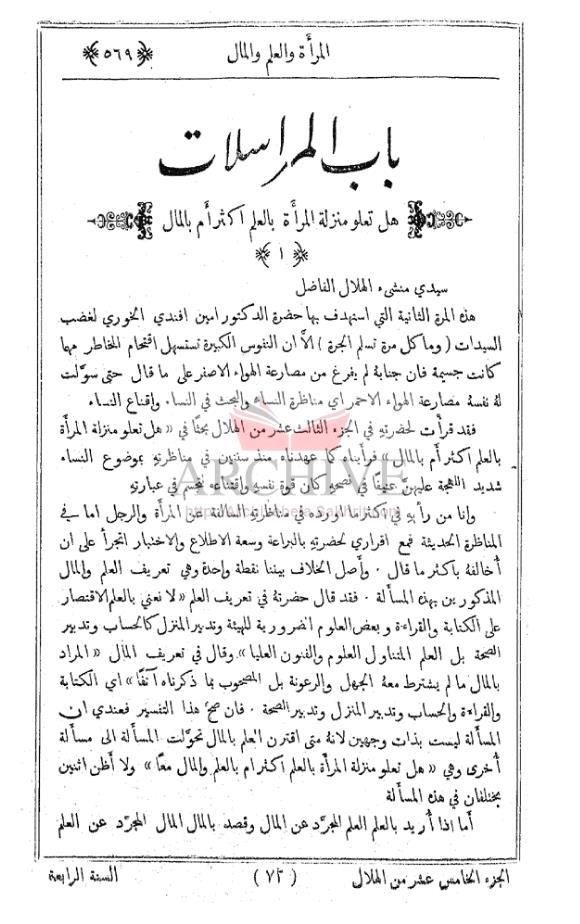 المرأة والعلم والمال
﴿٥٦٩﴾
باب المراسلات
هل تعلو منزلة المرأة بالعلم اكثر أم بالمال
﴿١﴾
سيدي منشىء الهلال الفاضل
هذه المرة الثانية التي استهدف بها حضرة الدكتور امين افندي الخوري لغضب
السيدات ( وما كل مرة تسلم الجرة ) الاَّ ان النفوس الكبيرة تستسهل اقتحام المخاطر مهما
كانت جسيمة فان جنابهُ لم يفرغ من مصارعة الهواء الاصفر على ما قال حتى سوَّلت
لهُ نفسهُ مصارعة الهواء الاحمر اي مناظرة النساء والبحث في النساء واقناع النساء
فقد قرأت لحضرتهِ في الجزء الثالث عشر من الهلال بحثًا في « هل تعلو منزلة المرأة
بالعلم اكثر أم بالمال » فرأيناه كما عهدناه منذ سنتين في مناظرتهِ بموضوع النساء
شديد اللهجة عليهنَّ عنيفًا في نصحهِ كأن قوة نفسهِ واقتناعه تتجسم في عبارتهِ
وانا من رأيهِ في اكثر ما اورده في مناظرتهِ السالفة عن المرأة والرجل اما في
المناظرة الحديثة فمع اقراري لحضرتهِ بالبراعة وسعة الاطلاع والاختبار اتجرأ على ان
أخالفهُ باكثر ما قال . وأصل الخلاف بيننا نقطة واحدة وهي تعريف العلم والمال
المذكورين بهذه المسألة . فقد قال حضرتهُ في تعريف العلم « لا نعني بالعلم الاقتصار
على الكتابة والقراءة وبعض العلوم الضرورية للهيئة وتدبير المنزل كالحساب وتدبير
الصحة بل العلم المتناول العلوم والفنون العليا » وقال في تعريف المال « المراد
بالمال ما لم يشترط معهُ الجهل والرعونة بل المصحوب بما ذكرناه آنفًا » اي الكتابة
والقراءة والحساب وتدبير المنزل وتدبير الصحة . فان صحَّ هذا التفسير فعندي ان
المسألة ليست بذات وجهين لانهُ متى اقترن العلم بالمال تحوَّلت المسألة الى مسألة
أُخرى وهي « هل تعلو منزلة المرأة بالعلم اكثر ام بالعلم والمال معًا » ولا أظن اثنين
يختلفان في هذه المسألة
أما اذا أُريد بالعلم العلم المجرَّد عن المال وقصد بالمال المال المجرَّد عن العلم
الجزء الخامس عشر من الهلال
(٧٢)
السنة الرابعة
ARCHIVE